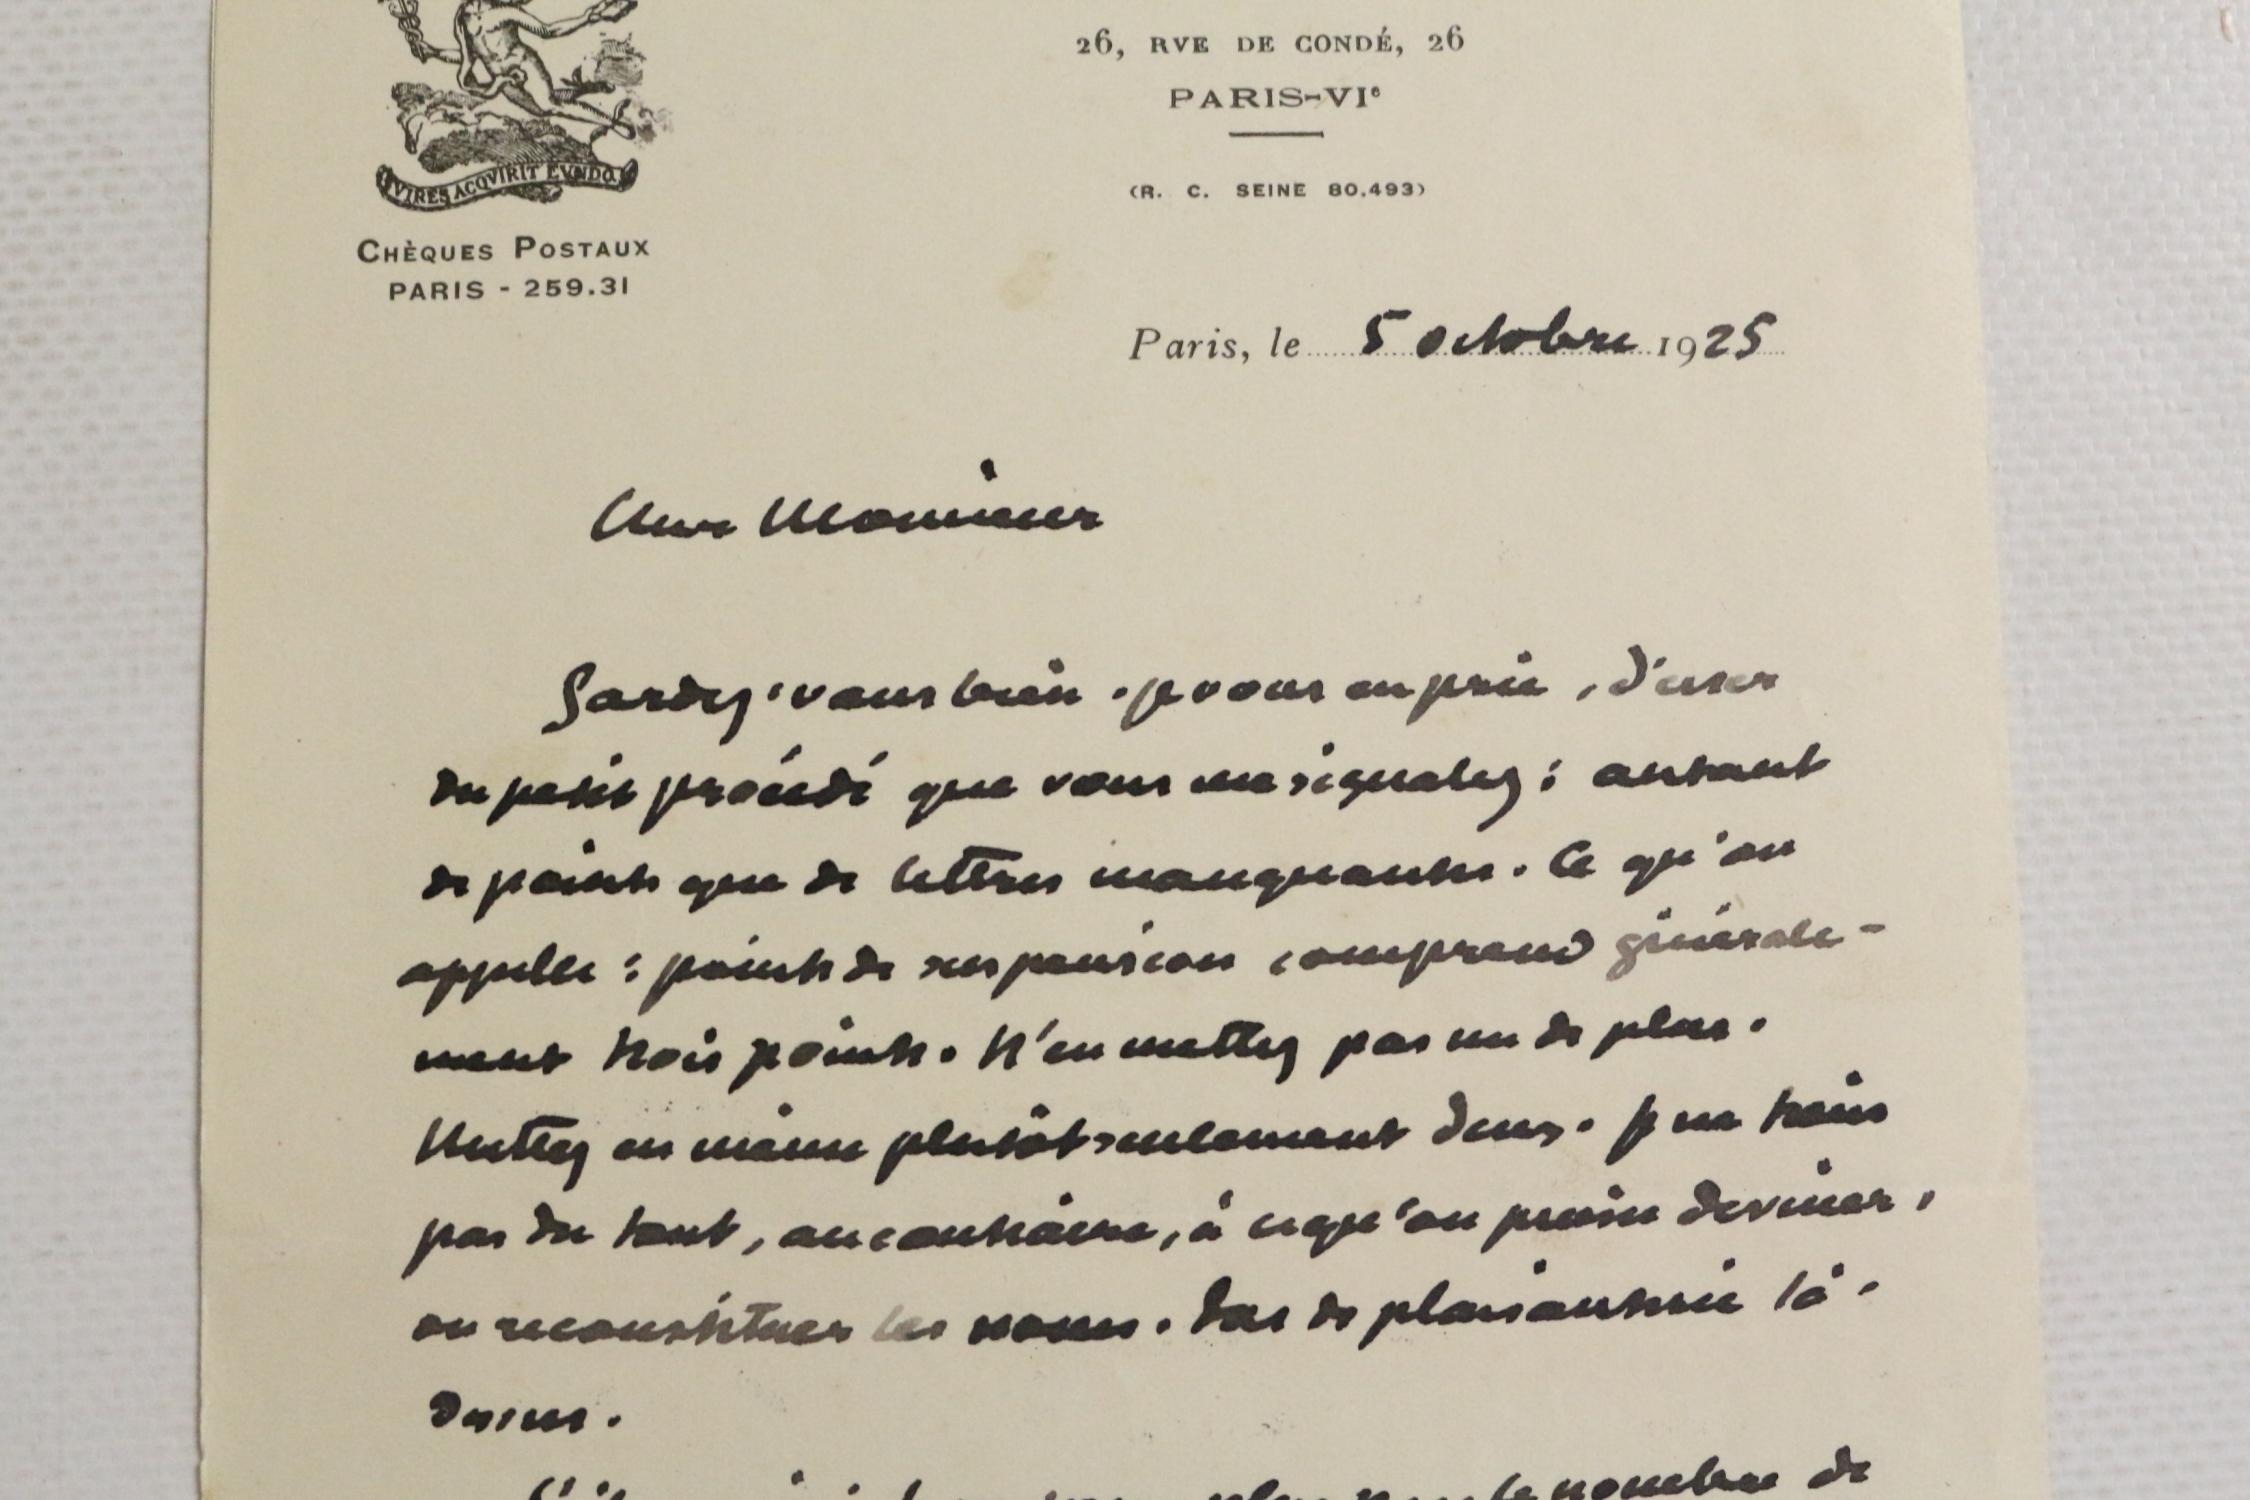 26, RVE DE CONDÉ, 26
PARIS-VIe
(R. C. SEINE 80.493)
VIRES ACQVIRIT EVNDO
CHÈQUES POSTAUX
PARIS - 259.31
Paris, le 5 octobre 1925
Cher Monsieur
Gardez-vous bien, je vous en prie, d'user
du petit procédé que vous me signalez : autant
de points que de lettres manquantes. Ce qu'on
appelle : points de suspension comprend générale-
ment trois points. N'en mettez pas un de plus.
Mettez en même plutôt seulement deux. Je ne tiens
pas du tout, au contraire, à ce qu'on puisse deviner,
ou reconstituer les noms. Pas de plaisanterie là-
dessus.
plus le nombre de